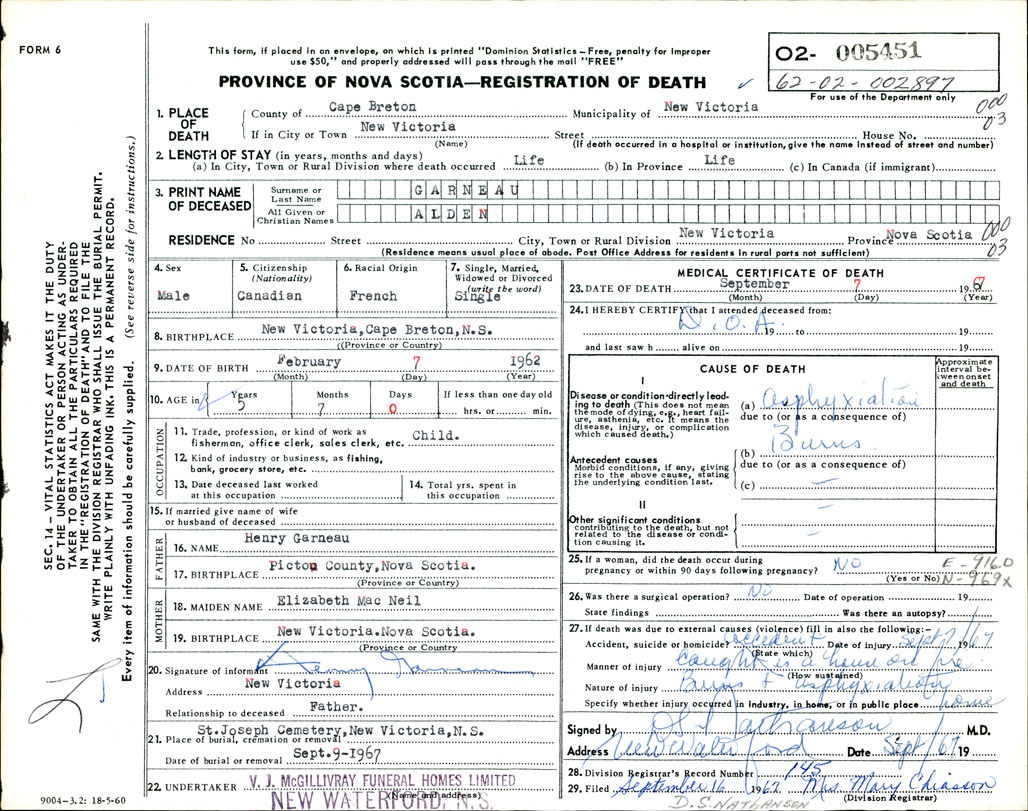 FORM 6
This form, if placed in an envelope, on which is printed "Dominion Statistics – Free, penalty for improper
use $50," and properly addressed will pass through the mail "FREE"
PROVINCE OF NOVA SCOTIA—REGISTRATION OF DEATH
02- 005451
62-02-002897
For use of the Department only
1. PLACE OF DEATH
County of Cape Breton Municipality of New Victoria
000
03
If in City or Town New Victoria Street House No.
(Name) (If death occurred in a hospital or institution, give the name instead of street and number)
2. LENGTH OF STAY (in years, months and days)
(a) In City, Town or Rural Division where death occurred Life (b) In Province Life (c) In Canada (if immigrant)
3. PRINT NAME OF DECEASED
Surname or Last Name GARNEAU
All Given or Christian Names ALDEN
RESIDENCE No Street City, Town or Rural Division New Victoria Province Nova Scotia
000
03
(Residence means usual place of abode. Post Office Address for residents in rural parts not sufficient)
4. Sex
Male
5. Citizenship
(Nationality)
Canadian
6. Racial Origin
French
7. Single, Married,
Widowed or Divorced
(write the word)
Single
8. BIRTHPLACE New Victoria,Cape Breton,N.S.
((Province or Country)
9. DATE OF BIRTH February 7 1962
(Month) (Day) (Year)
10. AGE in
Years
5
Months
7
Days
0
If less than one day old
hrs. or min.
OCCUPATION
11. Trade, profession, or kind of work as
fisherman, office clerk, sales clerk, etc. Child.
12. Kind of industry or business, as fishing,
bank, grocery store, etc.
13. Date deceased last worked
at this occupation
14. Total yrs. spent in
this occupation
15. If married give name of wife
or husband of deceased
FATHER
16. NAME Henry Garneau
17. BIRTHPLACE Picton County,Nova Scotia.
(Province or Country)
MOTHER
18. MAIDEN NAME Elizabeth Mac Neil
19. BIRTHPLACE New Victoria.Nova Scotia.
(Province or Country)
20. Signature of informant Henry Garneau
Address New Victoria
Relationship to deceased Father.
St.Joseph Cemetery,New Victoria,N.S.
21. Place of burial, cremation or removal
Date of burial or removal Sept.9-1967
22. UNDERTAKER V. J. McGILLIVRAY FUNERAL HOMES LIMITED
(Name and address)
NEW WATERFORD, N.S.
9004–3.2: 18-5-60
MEDICAL CERTIFICATE OF DEATH
23. DATE OF DEATH September 7 1967
(Month) (Day) (Year)
24. I HEREBY CERTIFY that I attended deceased from:
D.O.A. 19 to 19
and last saw h alive on 19
CAUSE OF DEATH
Approximate interval between onset and death
I
Disease or condition directly leading to death (This does not mean the mode of dying, e.g., heart failure, asthenia, etc. It means the disease, injury, or complication which caused death.)
(a) Asphyxiation
due to (or as a consequence of)
Burns
Antecedent causes
Morbid conditions, if any, giving rise to the above cause, stating the underlying condition last.
(b)
due to (or as a consequence of)
(c) —
II
Other significant conditions
contributing to the death, but not related to the disease or condition causing it.
25. If a woman, did the death occur during
pregnancy or within 90 days following pregnancy? NO
(Yes or No)
E-916.0
N-969x
26. Was there a surgical operation? NO Date of operation 19
State findings Was there an autopsy?
27. If death was due to external causes (violence) fill in also the following:–
Accident, suicide or homicide? Accident Date of injury Sept 7 1967
(State which)
Manner of injury caught is a house on fire.
(How sustained)
Nature of injury Burns + asphyxiation
Specify whether injury occurred in industry, in home, or in public place home
Signed by D S Nathanson M.D.
Address New Waterford Date Sept/67 19
28. Division Registrar's Record Number 145
29. Filed September 16 1967 Mrs Mary Chiasson
(Division Registrar)
D.S. NATHANSON
SEC. 14 – VITAL STATISTICS ACT MAKES IT THE DUTY
OF THE UNDERTAKER OR PERSON ACTING AS UNDER-
TAKER TO OBTAIN ALL THE PARTICULARS REQUIRED
IN THE "REGISTRATION OF DEATH" AND TO FILE THE
SAME WITH THE DIVISION REGISTRAR WHO SHALL ISSUE THE BURIAL PERMIT.
WRITE PLAINLY WITH UNFADING INK. THIS IS A PERMANENT RECORD.
Every item of information should be carefully supplied. (See reverse side for instructions.)